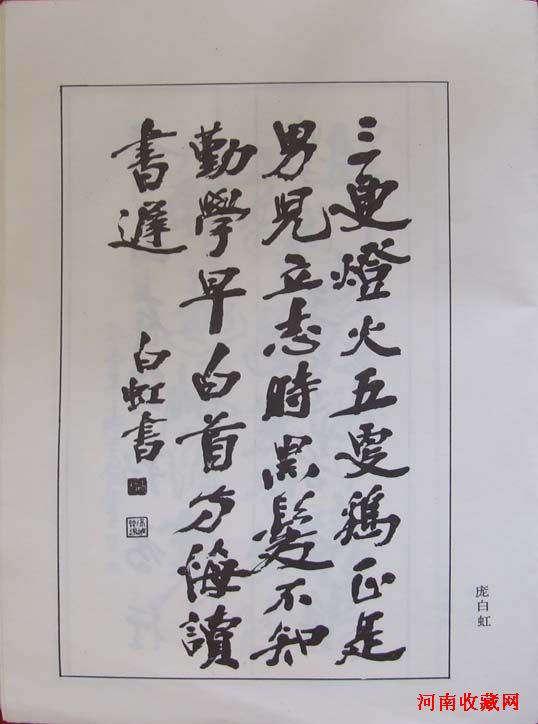 三更燈火五更鷄正是
男兒立志時黑髮不知
勤學早白首方悔讀
書遲
白虹書
庞白虹
河南收藏网